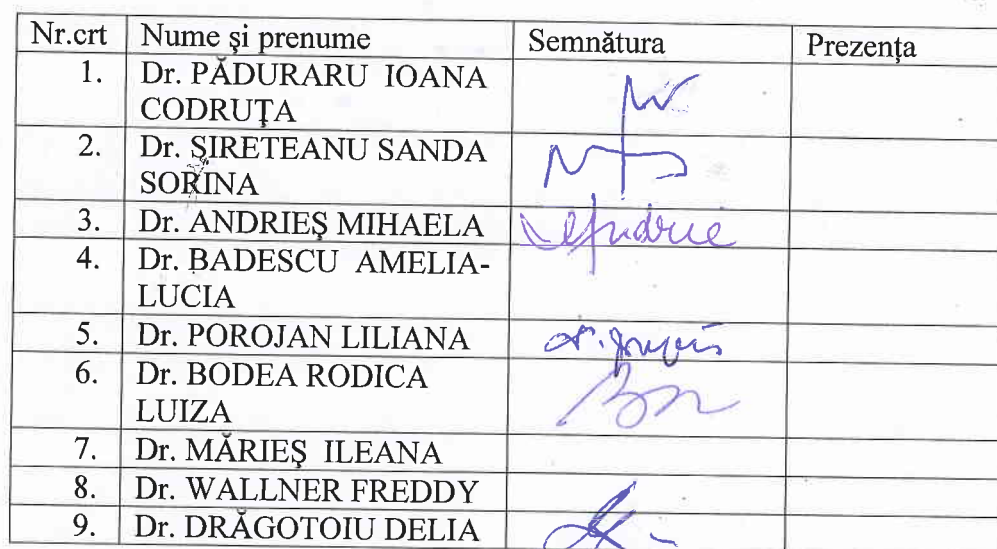 Nr.crt Nume şi prenume Semnătura Prezenţa
1. Dr. PĂDURARU IOANA
CODRUŢA
2. Dr. ŞIRETEANU SANDA
SORINA
3. Dr. ANDRIEŞ MIHAELA
4. Dr. BADESCU AMELIA-
LUCIA
5. Dr. POROJAN LILIANA
6. Dr. BODEA RODICA
LUIZA
7. Dr. MĂRIEŞ ILEANA
8. Dr. WALLNER FREDDY
9. Dr. DRĂGOTOIU DELIA